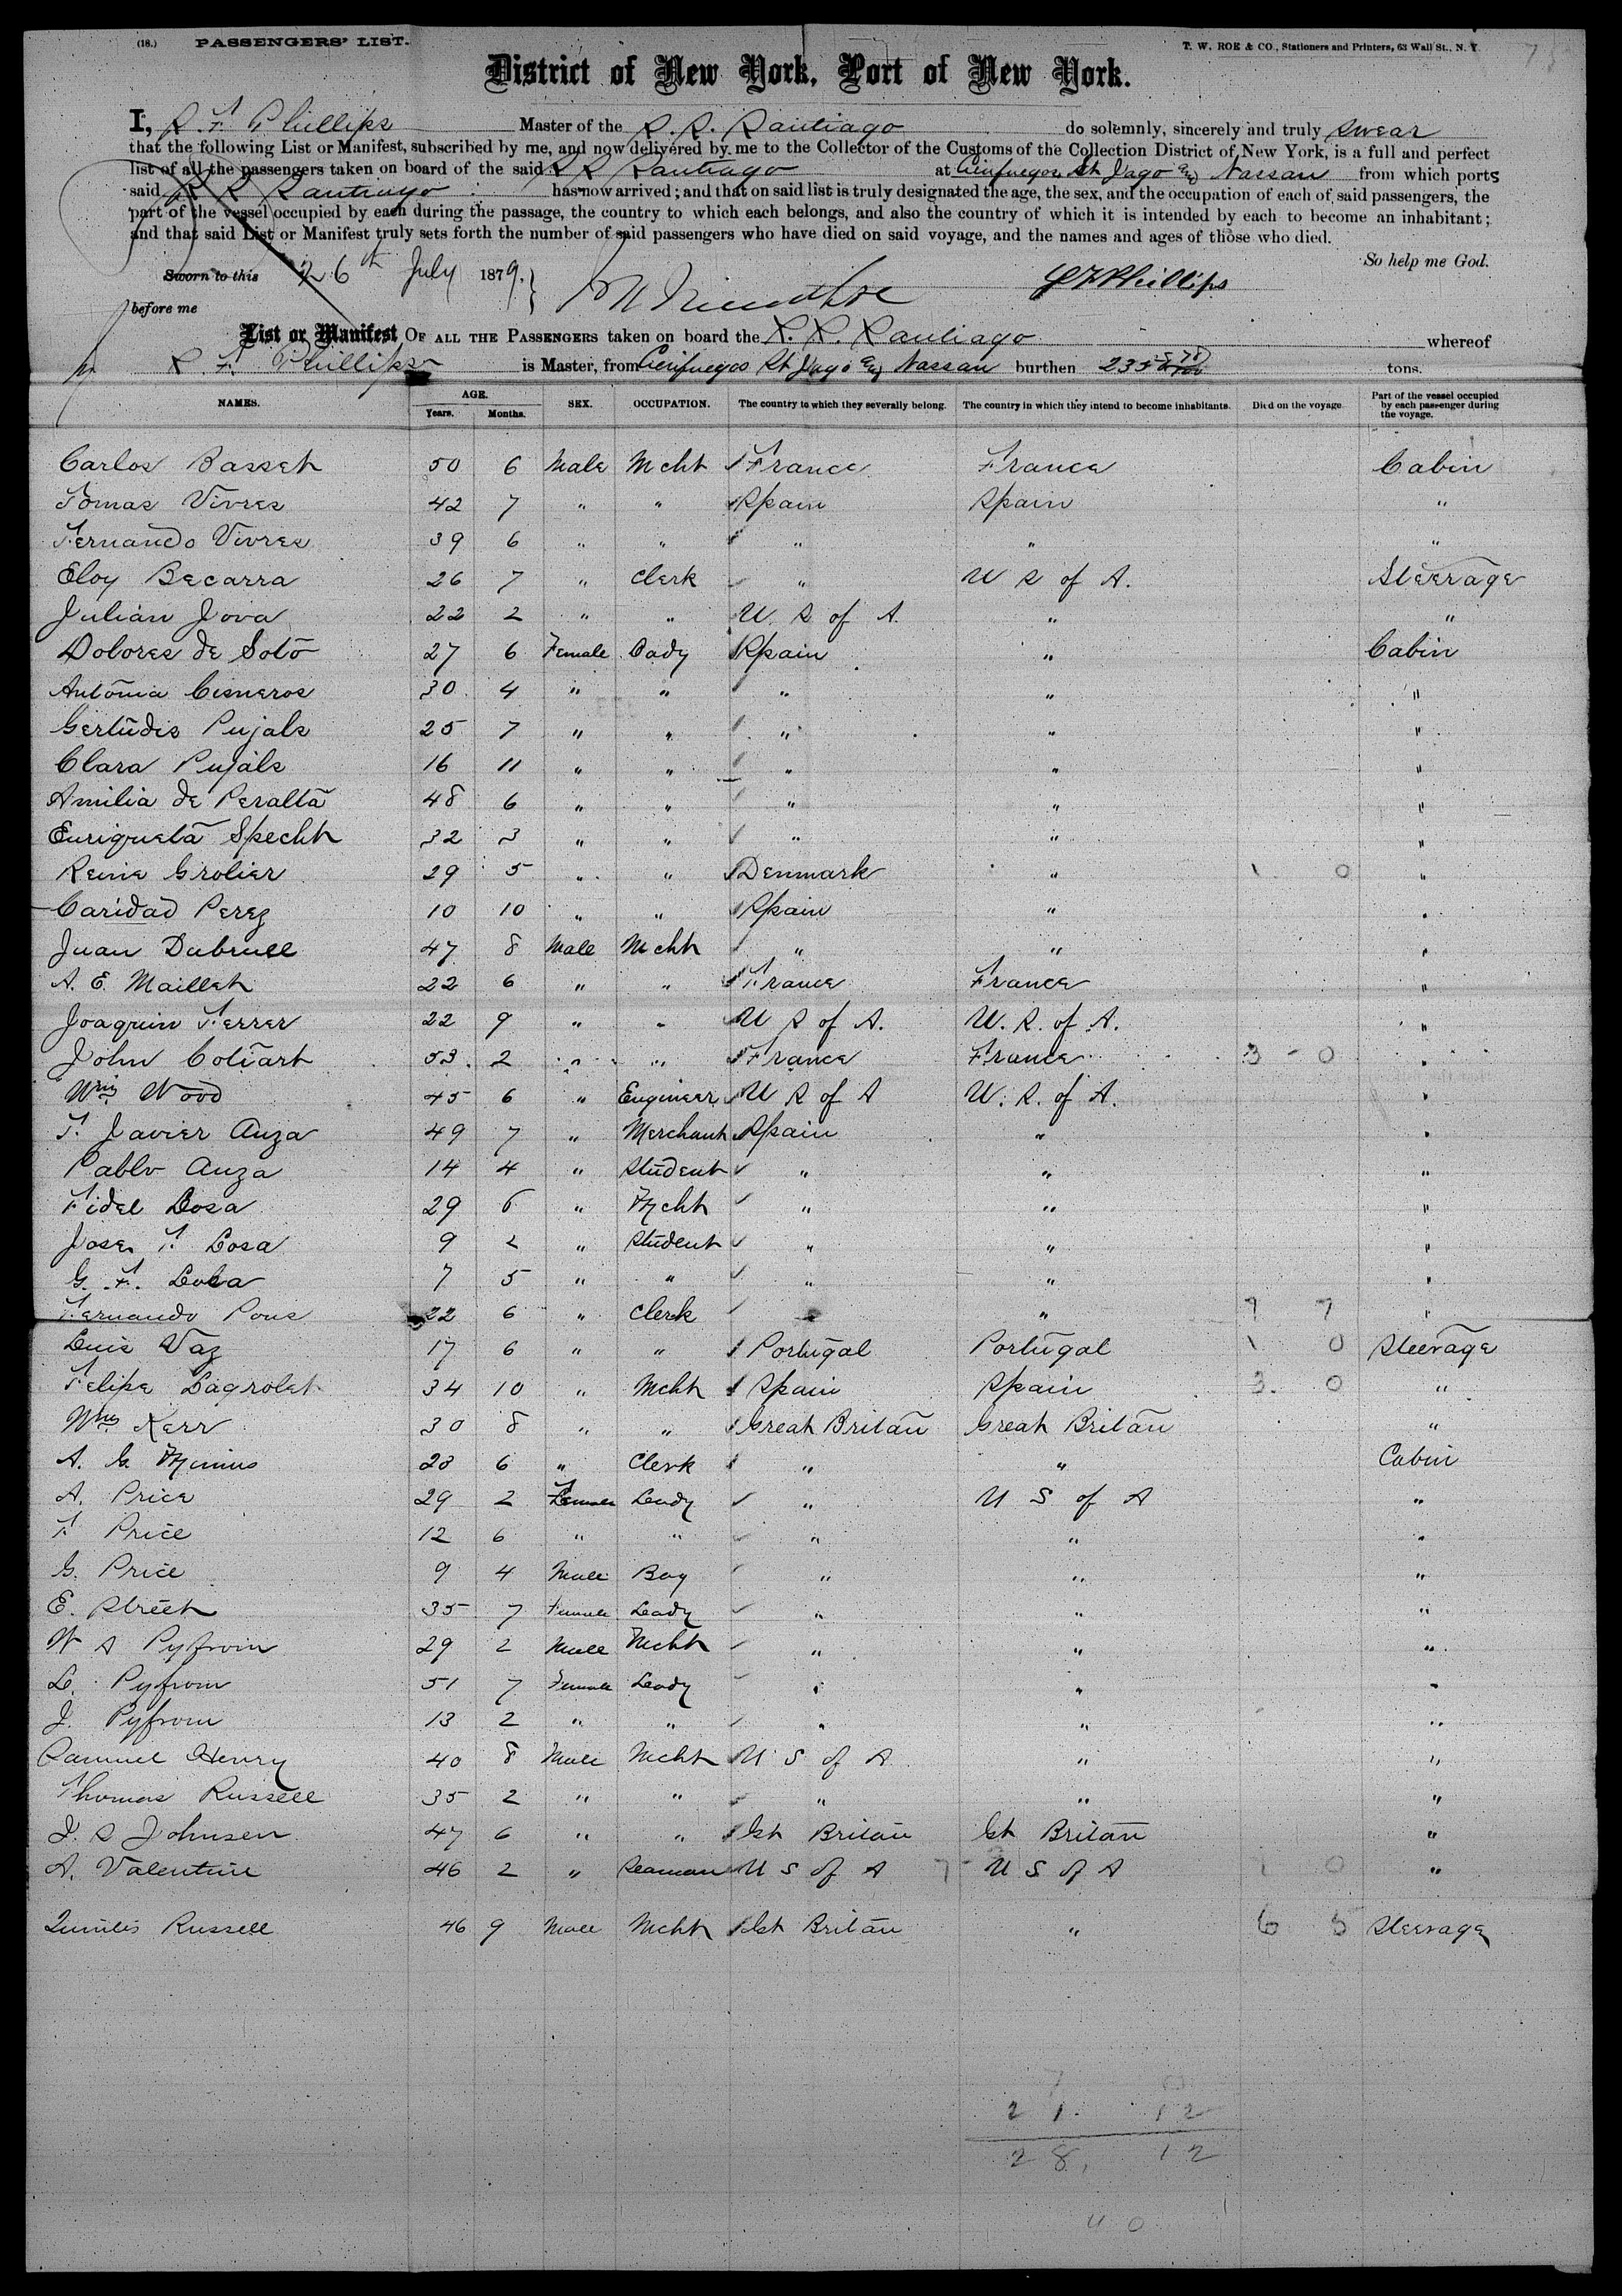 (18.) PASSENGERS' LIST. T. W. ROE & CO., Stationers and Printers, 63 Wall St., N. Y.
District of New York, Port of New York.
I, S. F. Phillips Master of the S. S. Santiago do solemnly, sincerely and truly swear
that the following List or Manifest, subscribed by me, and now delivered by me to the Collector of the Customs of the Collection District of New York, is a full and perfect
list of all the passengers taken on board of the said S S Santiago at Cienfuegos St Jago & Nassau from which ports
said S S Santiago has now arrived; and that on said list is truly designated the age, the sex, and the occupation of each of said passengers, the
part of the vessel occupied by each during the passage, the country to which each belongs, and also the country of which it is intended by each to become an inhabitant;
and that said List or Manifest truly sets forth the number of said passengers who have died on said voyage, and the names and ages of those who died.
So help me God.
Sworn to this 26th July 1879. Phillips
before me
List or Manifest OF ALL THE PASSENGERS taken on board the S. S. Santiago whereof
S. F. Phillips is Master, from Cienfuegos St Jago & Nassau burthen tons.
NAMES. AGE. Years. Months. SEX. OCCUPATION. The country to which they severally belong. The country in which they intend to become inhabitants. Died on the voyage. Part of the vessel occupied by each passenger during the voyage.
Carlos Basset 50 6 Male Mcht France France Cabin
Tomas Vivres 42 7 " " Spain Spain "
Fernando Vivres 39 6 " " " " "
Eloy Becarra 26 7 " Clerk " U S of A. Steerage
Julian Jova 22 2 " " U. S of A. " "
Dolores de Soto 27 6 Female Lady Spain " Cabin
Antonia Cisneros 30 4 " " " " "
Gertudis Pujals 25 7 " " " " "
Clara Pujals 16 11 " " " " "
Amilia de Peralta 48 6 " " " " "
Enriqueta Specht 32 3 " " " " "
Reine Grolier 29 5 " " Denmark " 1 0 "
Caridad Perez 10 10 " " Spain " "
Juan Dubrull 47 8 Male Mcht " " "
A. E. Maillet 22 6 " " France France "
Joaquin Ferrer 22 9 " " U S of A. U. S. of A. "
John Cotiart 53 2 " " France France 3 - 0 "
Wm Wood 45 6 " Engineer U S of A U. S. of A. "
F. Javier Auza 49 7 " Merchant Spain " "
Pablo Auza 14 4 " Student " " "
Fidel Losa 29 6 " Mcht " " "
Jose F. Losa 9 2 " Student " " "
G. F. Losa 7 5 " " " " "
Fernando Pons 22 6 " Clerk " " 7 7 "
Luis Vaz 17 6 " " Portugal Portugal 1 0 Steerage
Felipe Lagrolet 34 10 " Mcht Spain Spain 3. 0 "
Wm Kerr 30 8 " " Great Britan Great Britan "
A. G. 23 6 " Clerk " " Cabin
A. Price 29 2 Female Lady " U S of A "
F. Price 12 6 " " " " "
G. Price 9 4 Male Boy " " "
E. Street 35 7 Female Lady " " "
W S Pyfrom 29 2 Male Mcht " " "
L. Pyfrom 51 7 Female Lady " " "
J. Pyfrom 13 2 " " " " "
Samuel Henry 40 8 Male Mcht U S of A " "
Thomas Russell 35 2 " " " " "
J. S Johnsen 47 6 " " Gt Britan Gt Britan "
A. Valentine 46 2 " Seaman U S of A U S of A 1 0 "
Russell 46 9 Male Mcht Gt Britan " 6 5 Steerage
21. 12
28, 12
40